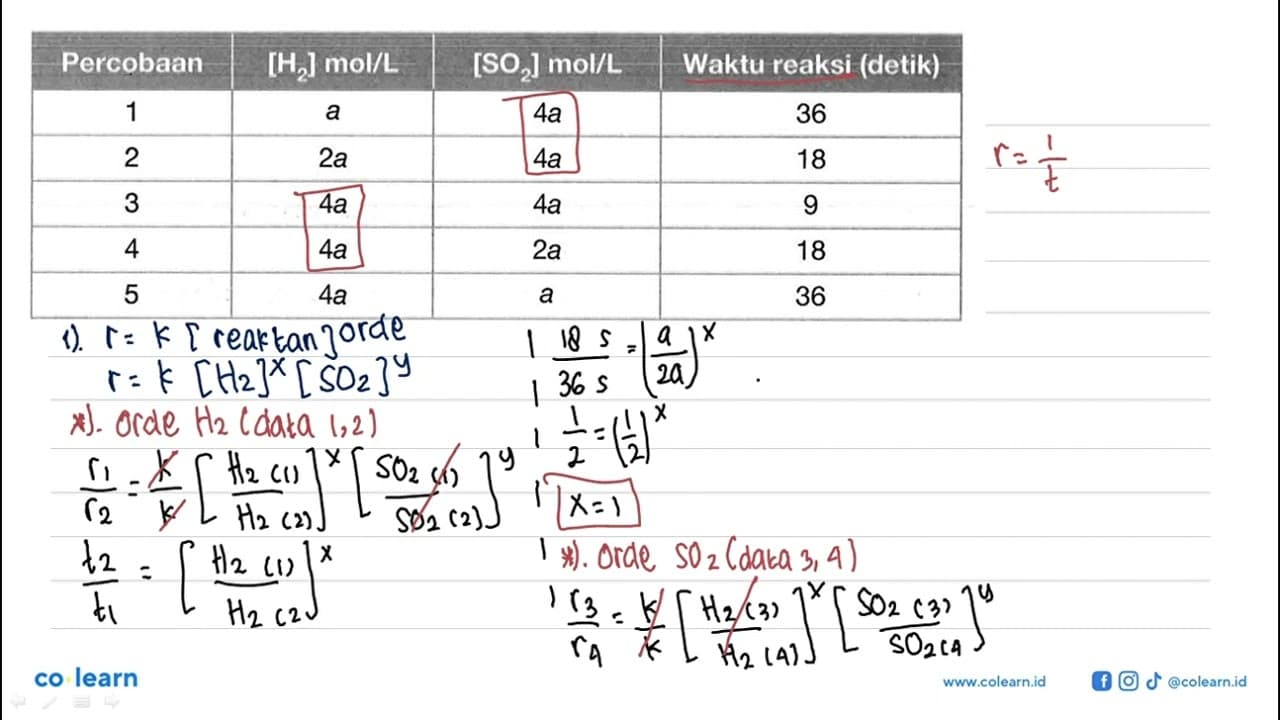 Percobaan [H₂] mol/L [SO₂] mol/L Waktu reaksi (detik)
1 a 4a 36
2 2a 4a 18
3 4a 4a 9
4 4a 2a 18
5 4a a 36
r = 1/t
1). r = k [reaktan]orde
r = k [H2]^x [SO2]^y
*). Orde H2 (data 1,2)
r1/r2 = k/k [H2 (1)/H2 (2)]^x [SO2 (1)/SO2 (2)]^y
t2/t1 = [H2 (1)/H2 (2)]^x
18 s/36 s = (a/2a)^x
1/2 = (1/2)^x
x = 1
*). Orde SO2 (data 3, 4)
r3/r4 = k/k [H2 (3)/H2 (4)]^x [SO2 (3)/SO2 (4]^y
co learn
www.colearn.id
@colearn.id